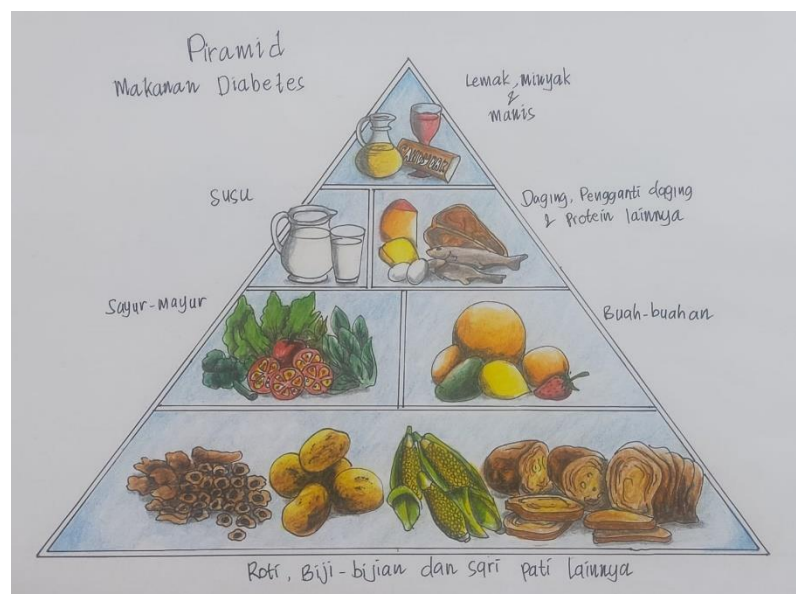 Piramid
Makanan Diabetes
Lemak, minyak
&
manis
Susu
Daging, Pengganti daging
& Protein lainnya
Sayur-mayur
Buah-buahan
Roti, Biji-bijian dan sari pati lainnya